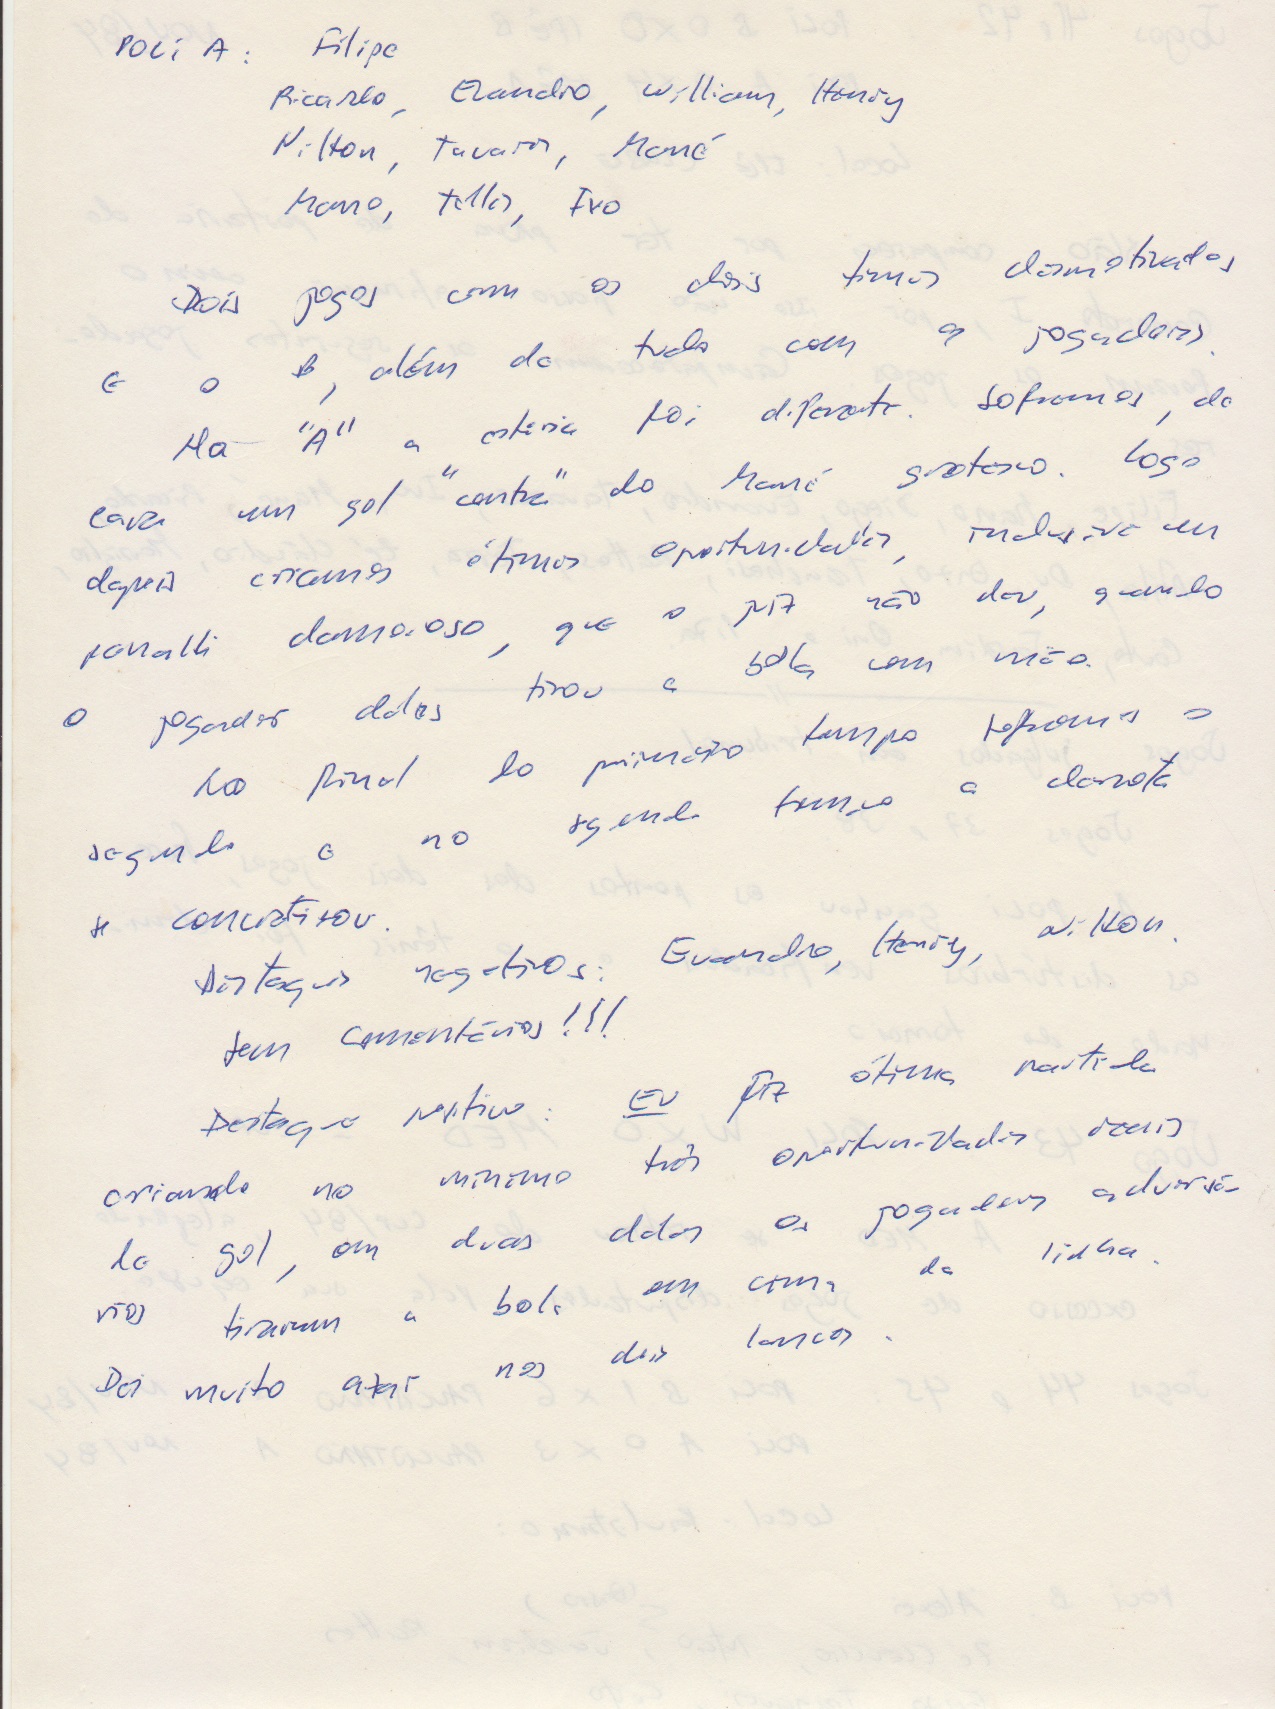 POLI A: Filipe
Ricardo, Evandro, William, Henry
Nilton, Tavares, Mané
Mano, Telles, Ivo
Dois jogos com os dois times desmotivados
e o B, além de tudo com 9 jogadores.
Na "A" a estória foi diferente. Sofremos, de
cara um gol "contra" do Mané grotesco. Logo
depois criamos ótimas oportunidades, inclusive um
penalti clamoroso, que o juiz não deu, quando
o jogador deles tirou a bola com mão.
No final do primeiro tempo sofremos o
segundo e no segundo tempo a derrota
se concretizou.
Destaques negativos: Evandro, Henry, Nilton.
sem comentários!!!
Destaque positivo: EU fiz ótima partida
criando no mínimo três oportunidades reais
de gol, em duas delas os jogadores adversá-
rios tiraram a bola em cima da linha.
Dei muito azar nos dois lances.